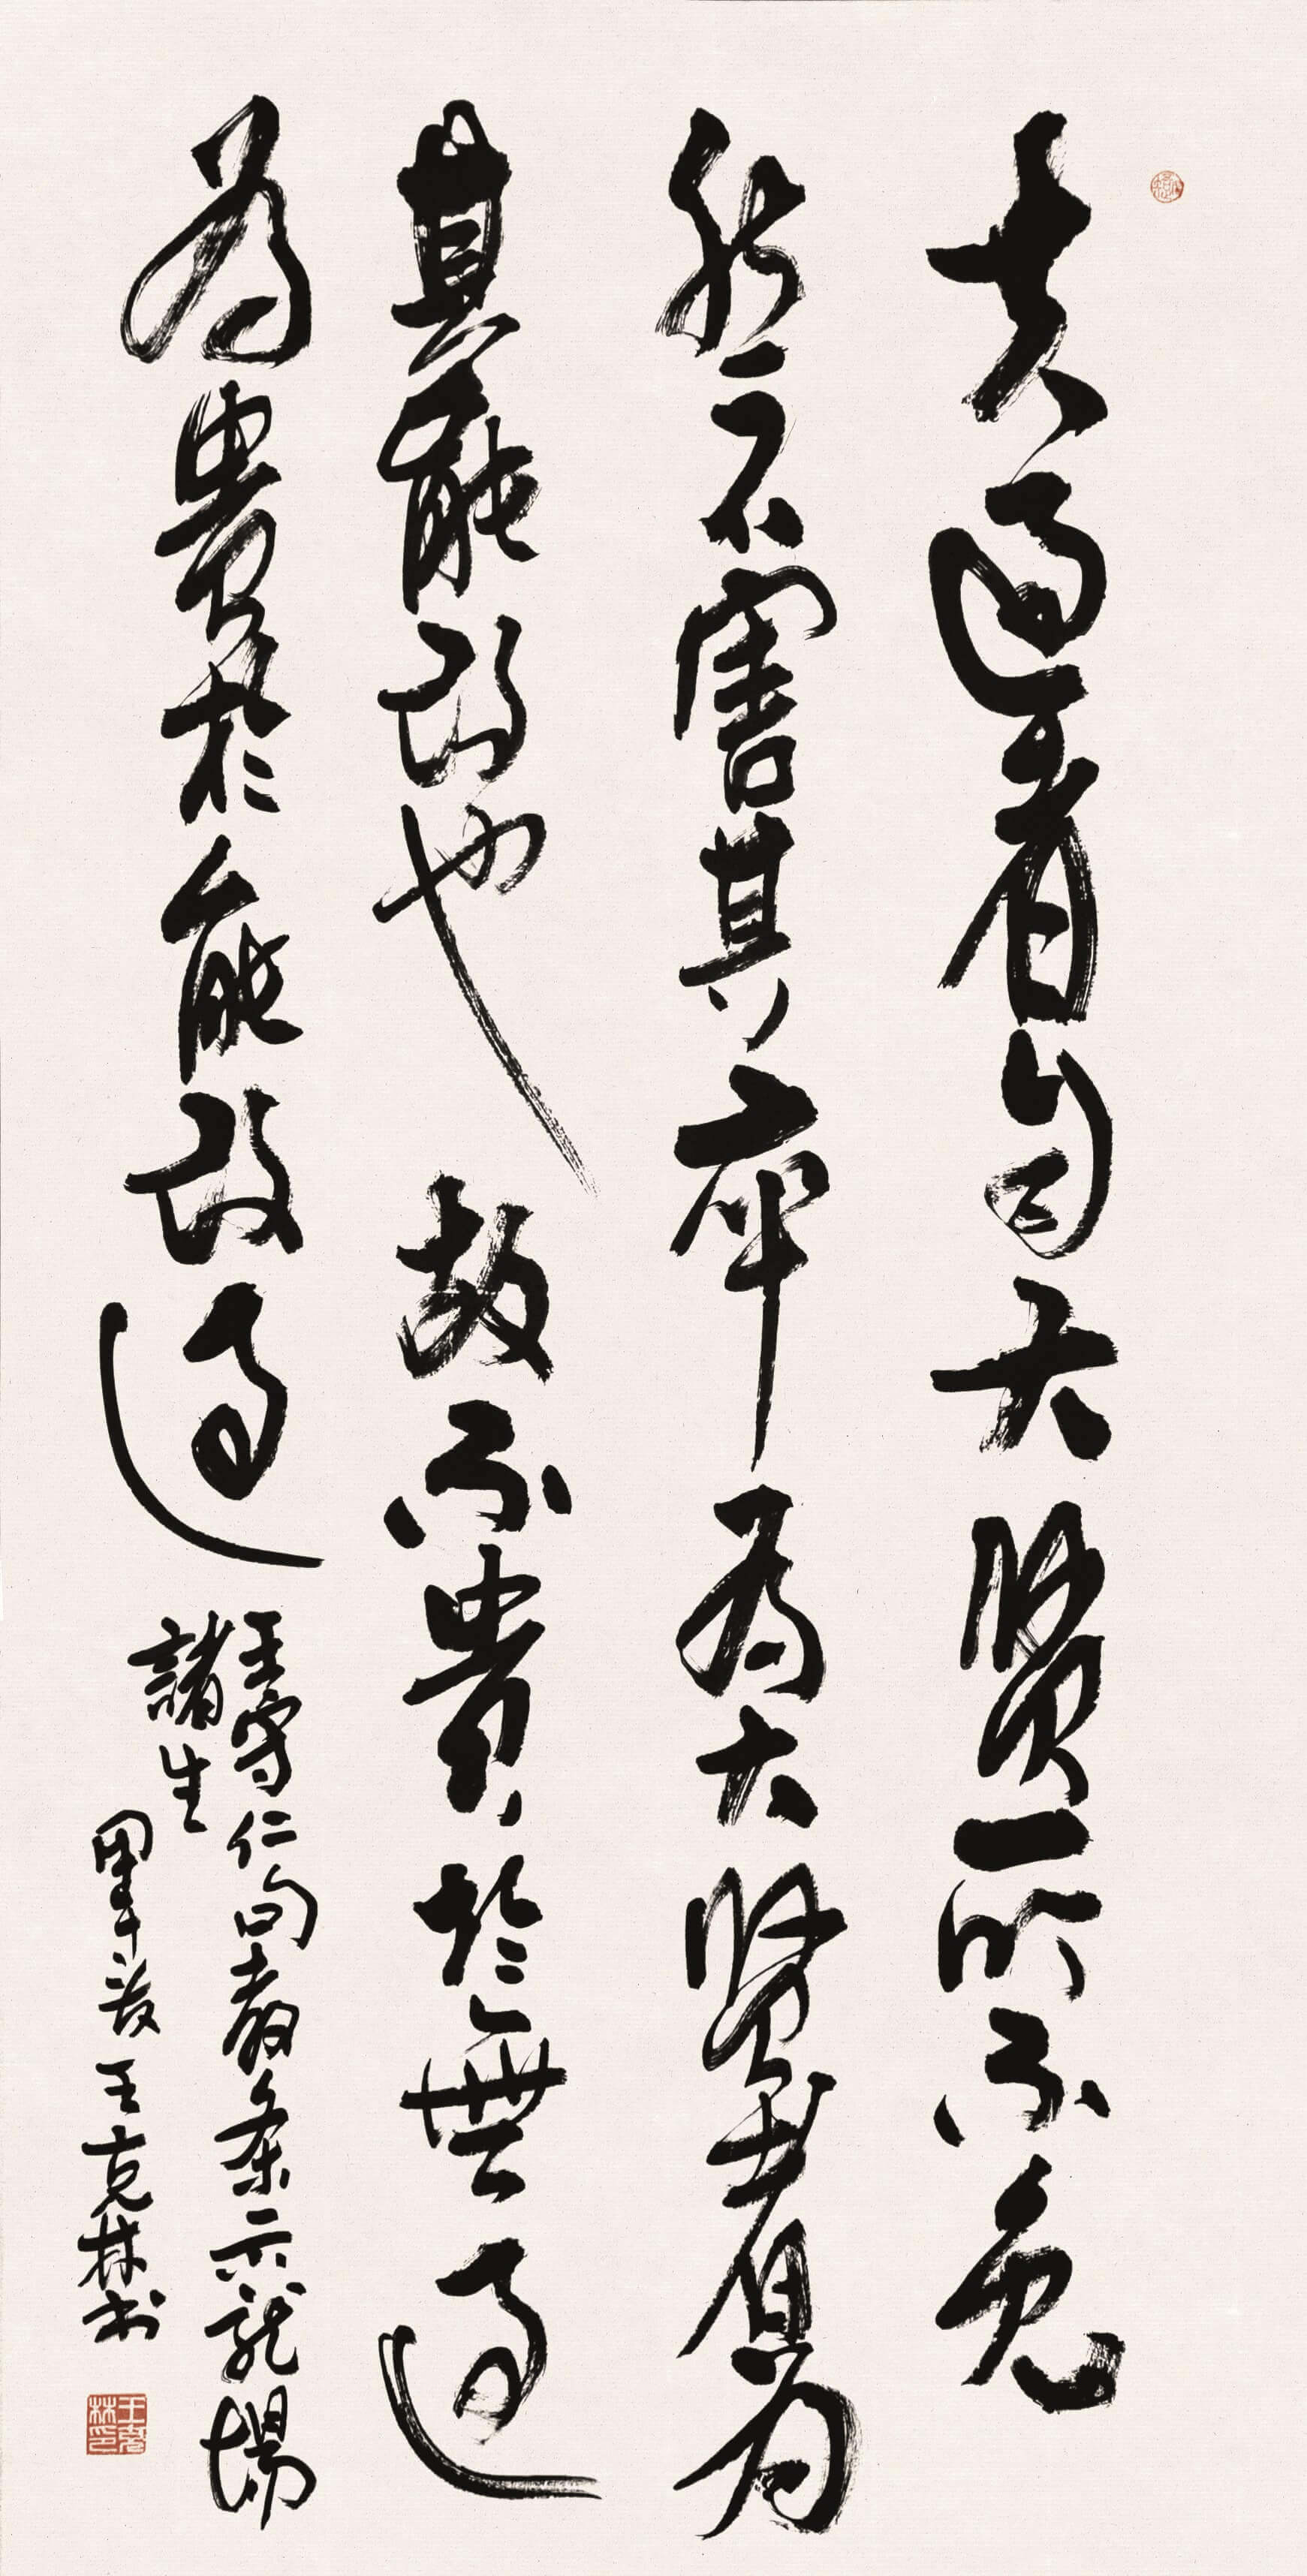 夫過者自大賢所不免
然不害其卒為大賢者為
其能改也故不貴於無過
為貴於能改過
王守仁句教条示龍場
諸生
甲午 王克林书
王克林印